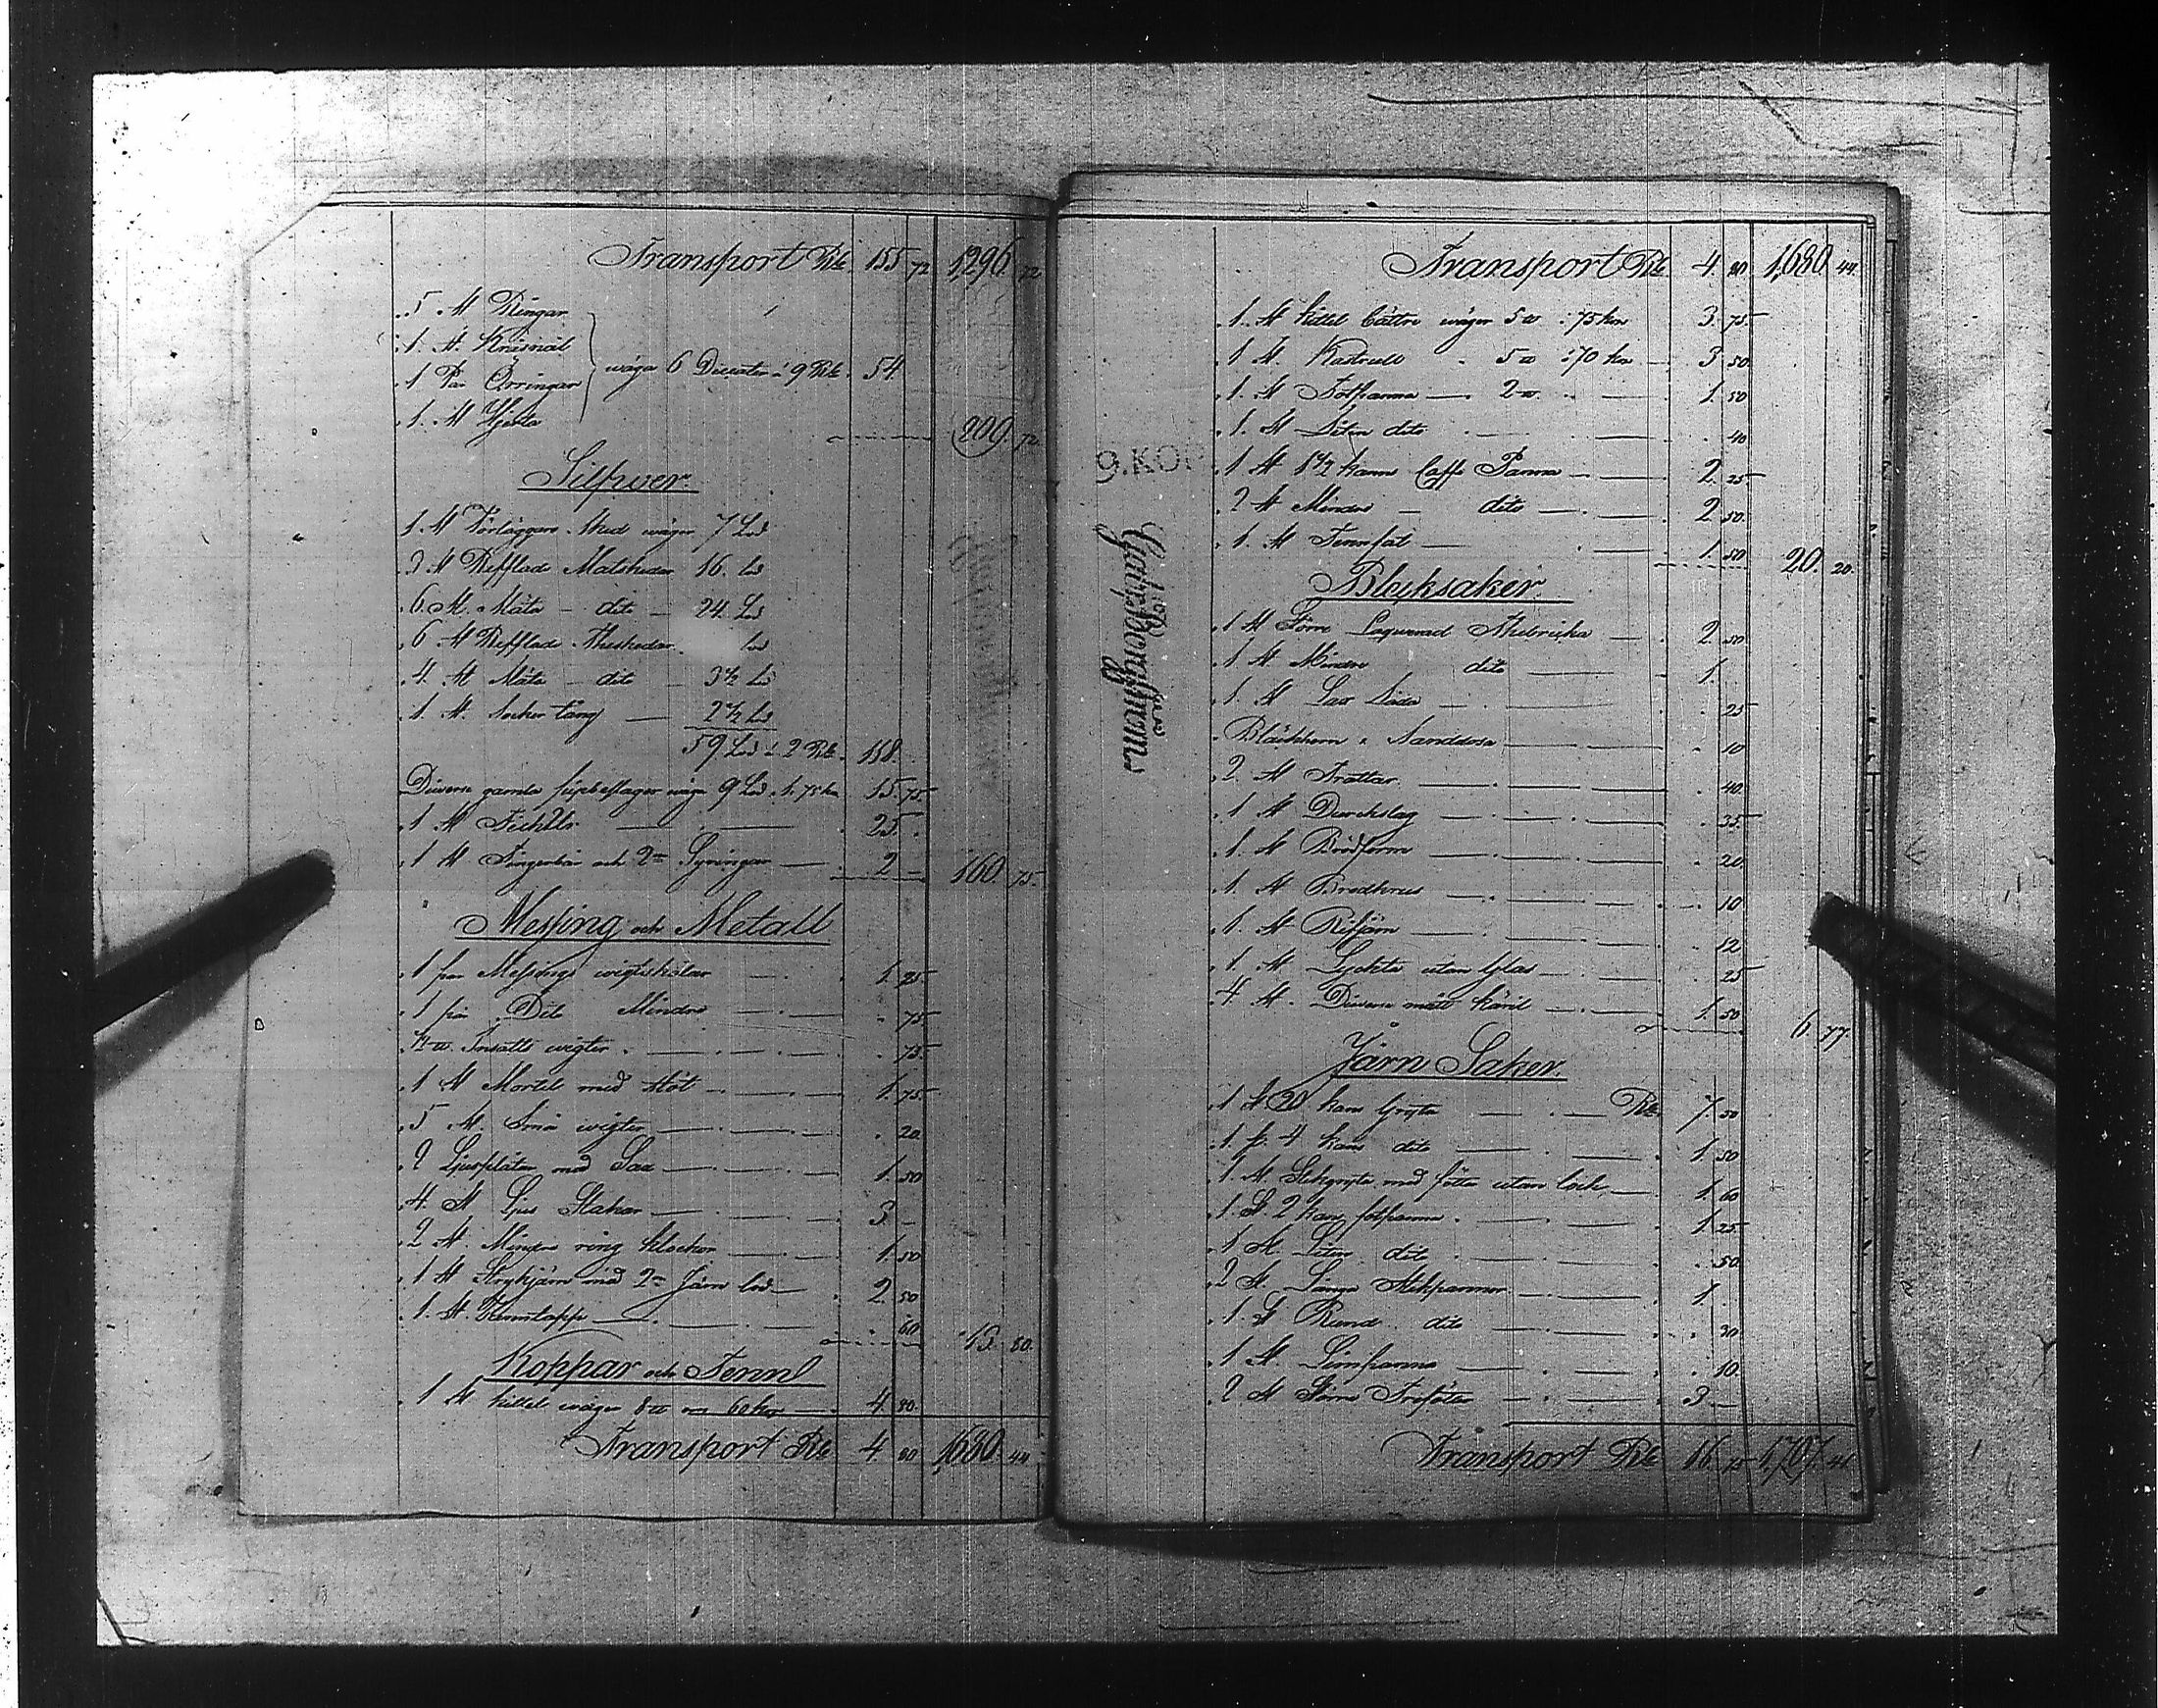 Transport Rdr 155 72 1296 72
5 st Ringar
1 st Kråsnål
1 Par Örringar
wäga 6 Ducater à 9 Rdr 54
1 st Hjerta
209 72
Silfwer
1 st Förläggare Sked wäger 7 Lod
3 st Refflade Matskedar 16 lod
6 st Släta dito 24 Lod
6 st Refflade Theskedar lod
4 st Släta dito 3 1/2 Lod
1 st Sockertång 2 1/2 Lod
59 Lod à 2 Rdr 118
Diverse gamla wäga 9 Lod 1.75 15 75
1 st 25
1 st Fingerbår och 2 Syringar 2 160 75
Messing och Metall
1 par Messings wigtskålar 1 25
1 par Dito Mindre 75
Insatts wigter 75
1 st Mortel med stöt 1 75
5 st Små wigter 20
2 Ljusplåtar med Sax 1 50
4 st Ljus Stakar 3
2 st Mindre ring klockor 1 50
1 st Strykjärn med 2 Järn lod 2 50
1 st 60
13 80
Koppar och Tenn
1 st kittel wäger 8 60 4 80
Transport Rdr 4 80 1680 44
Transport Rdr 4 80 1680 44
1 st kittel bättre wäger 5 75 3 75
1 st Kastrull 5 70 3 50
1 st Fotpanna 2 1 50
1 st Liten dito 40
1 st 1 1/2 kann Caffe Panna 2 25
2 st Mindre dito 2 50
1 st Tennfat 1 50
20 20
9.KOP
Bleksaker
1 st Större Laquerad Thebricka 2 50
1 st Mindre dito 1
1 st Låda 25
Bläckhorn & Sanddosa 10
2 st Trattar 40
1 st Durckslag 35
1 st Brödform 20
1 st 10
1 st Rifjärn 12
1 st Lyckta utan Glas 25
4 st Diverse mått käril 1 50
6 77
Järn Saker
1 st 20 kans Gryta Rdr 7 50
1 st 4 kans dito 1 50
1 st Stekgryta med fötter utan lock 1 60
1 st 2 kans fotpanna 1 25
1 st Liten dito 50
2 st Långa Stekpannor 1
1 st Rund dito 30
1 st Limpanna 10
2 st Större Trefötter 3
Transport Rdr 16 75 1,707 41